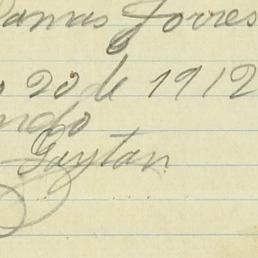 Damas Torres
o 20 de 1912
ndo
Gaytan